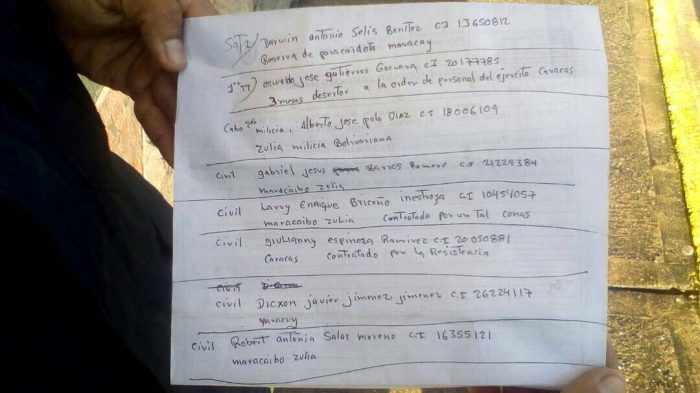 SGT2/ Darwin antonio Solis Benitez C.I 13650812
Reserva de paracaidota maracay
1er TT/ oswaldo jose gutierres Guevara C.I 20177785
3 meses desertor a la orden de personal del ejercito Caracas
Cabo 2do milicia, Alberto jose polo Diaz C.I 18006104
Zulia milicia Bolivariana
Civil gabriel jesus Barros Romero C.I 21229384
maracaibo Zulia
Civil Larry Enrique Briceño inestroza C.I 10454057
maracaibo Zulia Contratado por un tal Conas
Civil giulianny espinoza Ramirez C.I 20050881
Caracas Contratado por la Resistencia
Civil Dicxon javier jimenez jimenez C.I 26224117
Yaracuy
Civil Robert antonia Salas moreno C.I 16355121
maracaibo Zulia